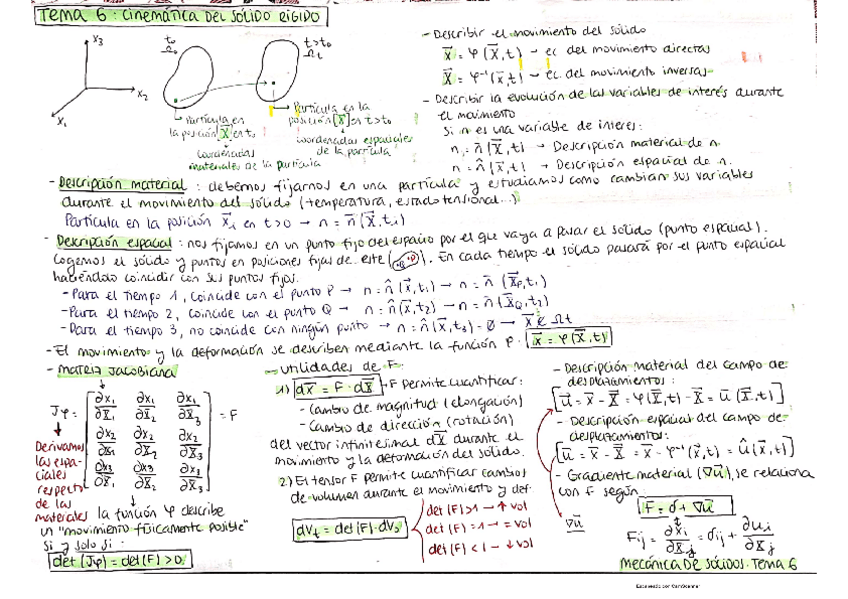 Tema 6: Cinemática del sólido rígido
x3
x2
x1
t0
Ω0
t>t0
Ωt
Partícula en
la posición X en t0
coordenadas
materiales de la partícula
Partícula en la
posición X en t>t0
coordenadas espaciales
de la partícula
- Describir el movimiento del sólido
x = φ(X,t) → ec del movimiento directas
X = φ⁻¹(x,t) → ec. del movimiento inversas
- Describir la evolución de las variables de interés durante
el movimiento
Si n es una variable de interés:
n = n̄(X,t) → Descripción material de n.
n = n̂(x,t) → Descripción espacial de n.
- Descripción material : debemos fijarnos en una partícula y estudiamos como cambian sus variables
durante el movimiento del sólido (temperatura, estado tensional...)
Partícula en la posición Xi en t>0 → n = n̄(X,ti)
- Descripción espacial : nos fijamos en un punto fijo del espacio por el que vaya a pasar el sólido (punto espacial).
Cogemos el sólido y puntos en posiciones fijas de este ( ). En cada tiempo el sólido pasará por el punto espacial
haciéndolo coincidir con sus puntos fijos.
- Para el tiempo 1, coincide con el punto P → n = n̂(x,t1) → n = n̄(XP,t1)
- Para el tiempo 2, coincide con el punto Q → n = n̂(x,t2) → n = n̄(XQ,t2)
- Para el tiempo 3, no coincide con ningún punto → n = n̂(x,t3) = Ø → x ∉ Ωt
- El movimiento y la deformación se describen mediante la función φ. x = φ(X,t)
- Matriz Jacobiana
Jφ = [∂x1/∂X1 ∂x1/∂X2 ∂x1/∂X3
∂x2/∂X1 ∂x2/∂X2 ∂x2/∂X3
∂x3/∂X1 ∂x3/∂X2 ∂x3/∂X3] = F
Derivamos
las espa-
ciales
respecto
de las
materiales
la función φ describe
un "movimiento físicamente posible"
si y solo si :
det(Jφ) = det(F) > 0
- Utilidades de F:
1) dx = F · dX → F permite cuantificar:
- Cambio de magnitud (elongación)
- Cambio de dirección (rotación)
del vector infinitesimal dX durante el
movimiento y la deformación del sólido.
2) El tensor F permite cuantificar cambios
de volumen durante el movimiento y def.
dVt = det(F)·dV0
det(F)>1 → ↑ vol
det(F)=1 → = vol
det(F)<1 → ↓ vol
- Descripción material del campo de
desplazamientos:
[u = x - X = φ(X,t) - X = ū(X,t)]
- Descripción espacial del campo de
desplazamientos:
[u = x - X = x - φ⁻¹(x,t) = û(x,t)]
- Gradiente material (∇u), se relaciona
con F según
F = δ + ∇u
∇u
Fij = ∂xi/∂Xj = δij + ∂ui/∂Xj
Mecánica de sólidos. Tema 6
Escaneado con CamScanner